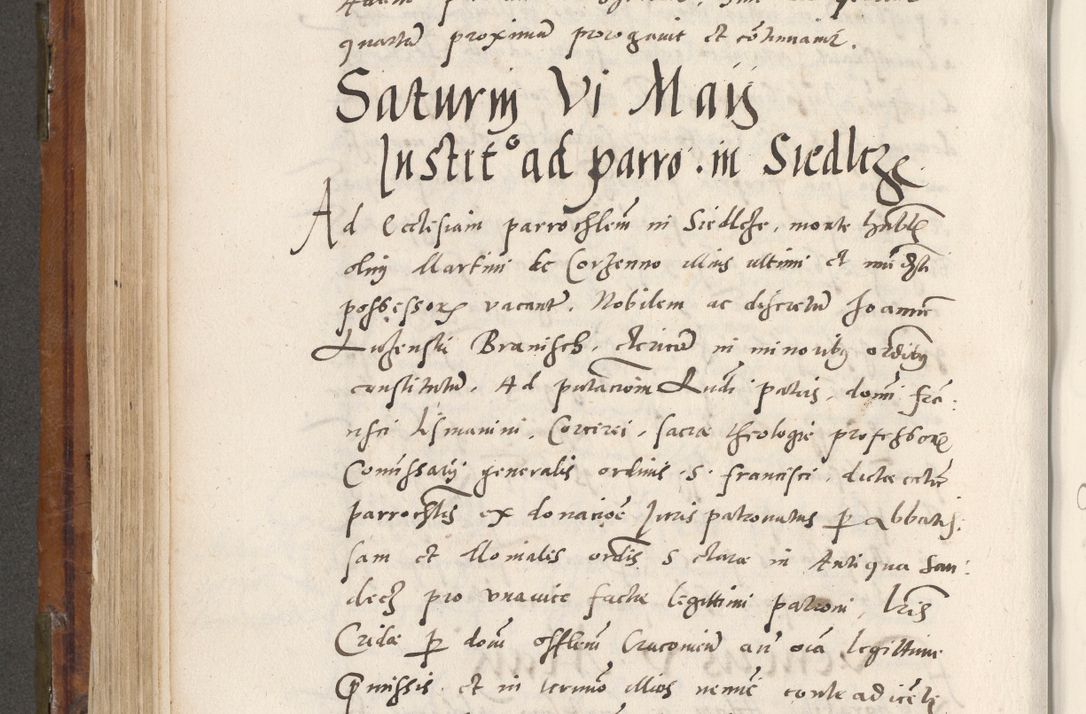 quartũ proximũ prorogavit et cõtinuavit.
Saturñ Vi Maij
Instit⁰ ad parro. in Siedlcze
Ad Ecclesiam parrochlem̃ in Siedlcze, morte hñbl̃
olim Martini de Corzenno illius ultimi et imẽditi
possessoris vacantẽ. Nobilem ac discretũ Joannẽ
Luzenski Branisch, clericũ in minoribꝰ ordibꝰ
constitutũ. Ad pn̄tacionem Rndi patris, domi frã:
cisci Lismanini, Corcirei, sacræ theologie professoris
Comissarij generalis ordinis S. Francisci, dictæ eccliẽ
parrochlis ex donacioẽ Juris patronatus per abbatis:
sam et Moniales ordis S Claræ in Antiqua San:
decz pro una vice factæ legittimi patroni, lris
Cridæ per dom̃ officlem̃ Cracovieñ an̄ oia legittime
p̄missis et in termĩo illos nemĩe contradicẽte